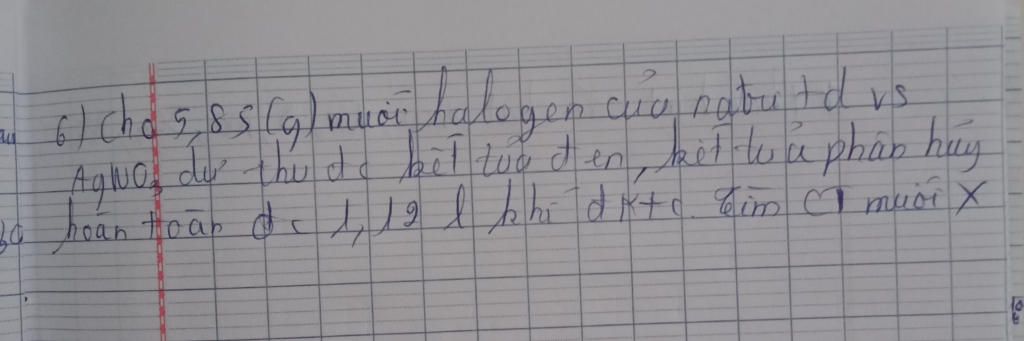 6) Cho 5,85 (g) muối halogen của natri td vs
AgNO3 dư thu dc kết tủa đen, kết tủa phân hủy
hoàn toàn dc 1,19 l khí dktc. tìm CT muối X